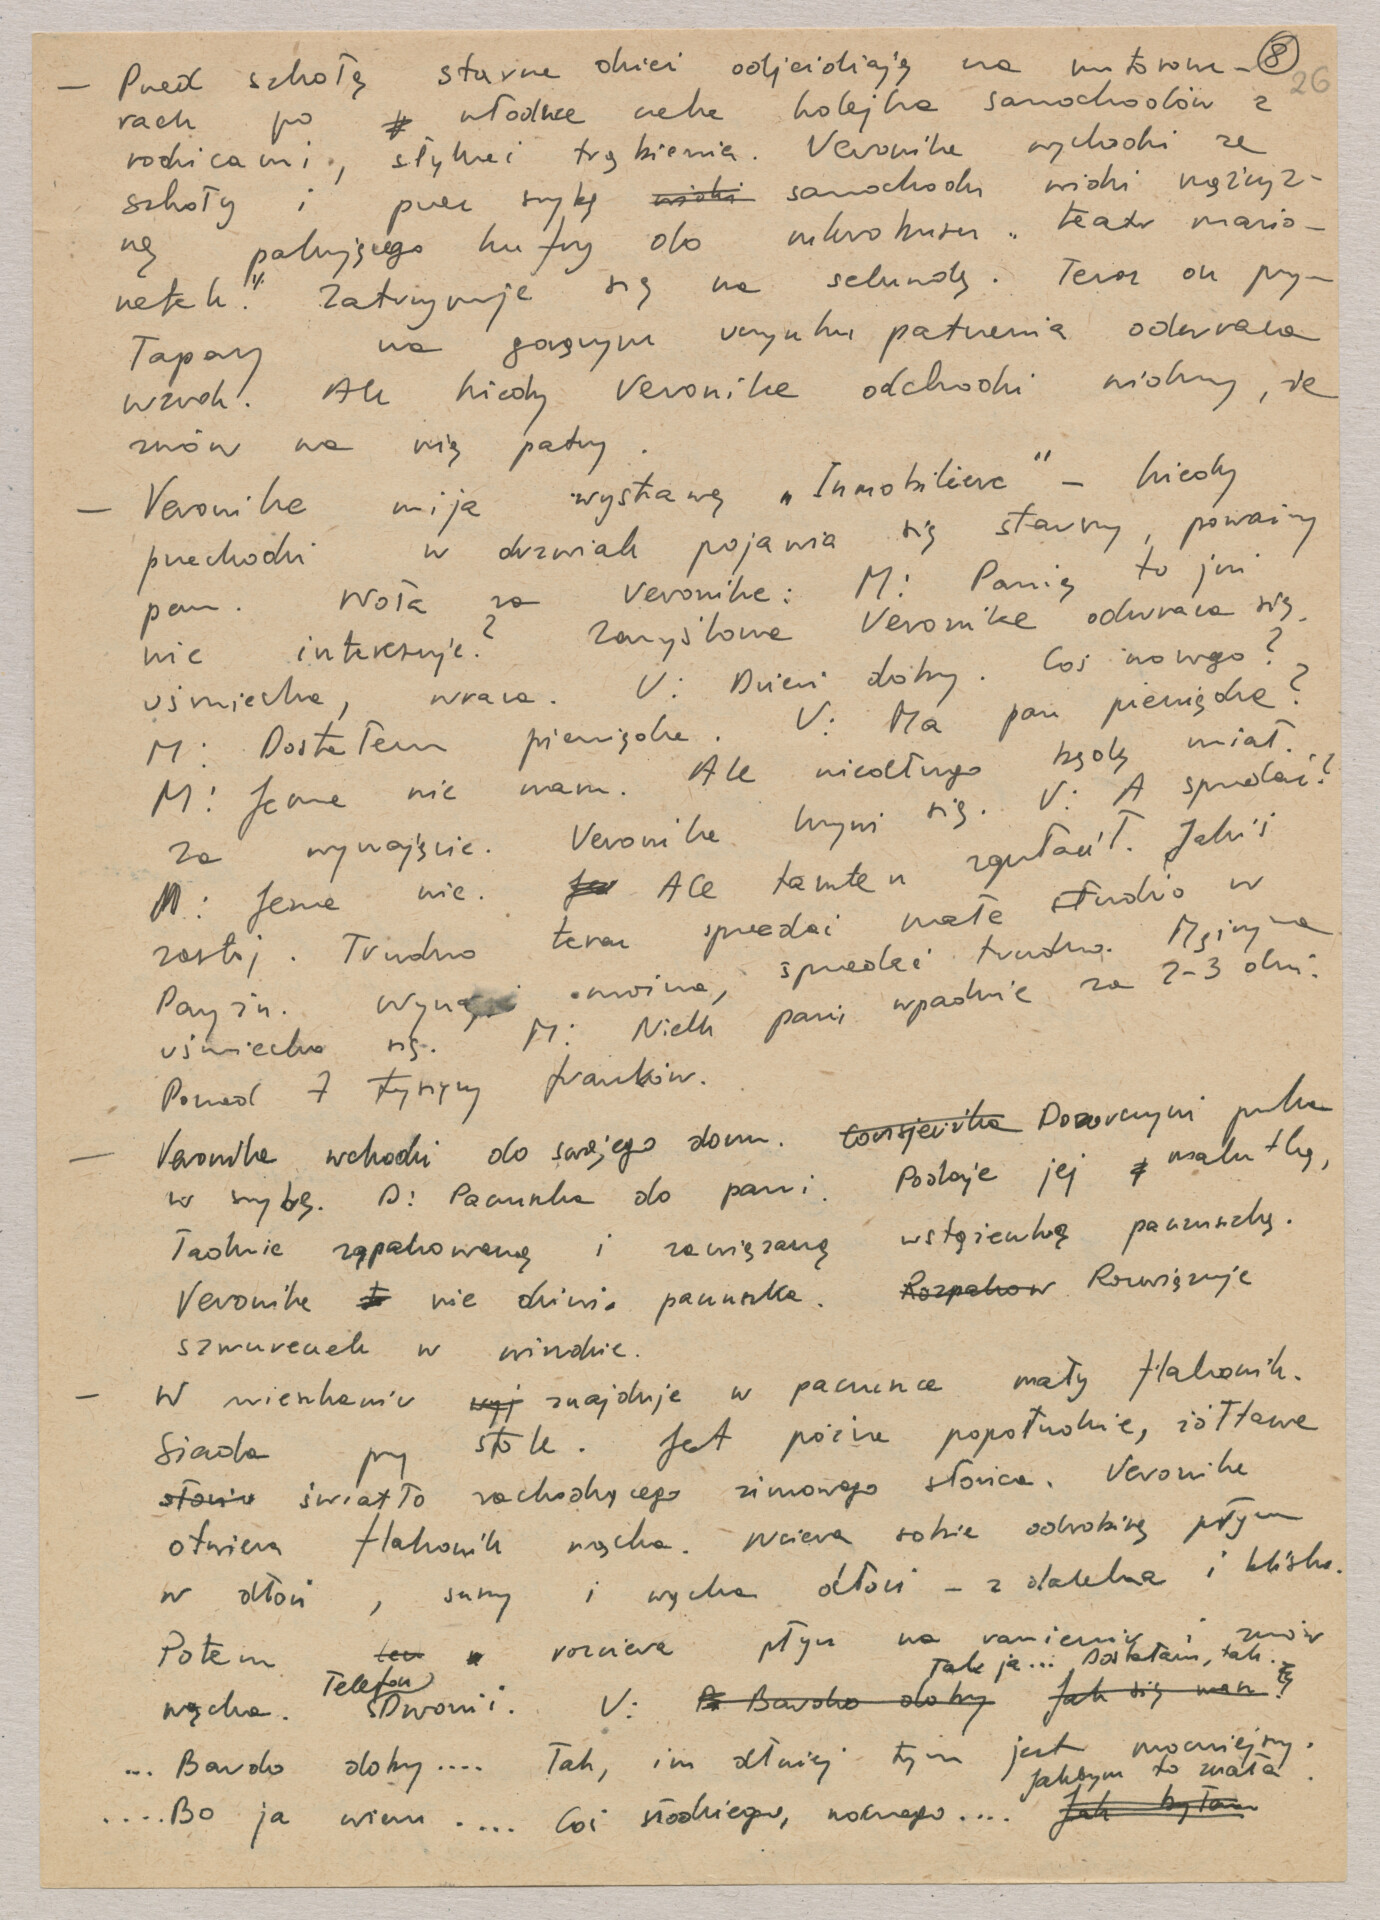 8
26
— Przed szkołą starsze dzieci odjeżdżają na motorowe-
rach po młodsze czeka kolejka samochodów z
rodzicami, słychać trąbienia. Veronika wychodzi ze
szkoły i przez szybę widzi samochodu widzi mężczyz-
nę pakującego kufry do mikrobusu „teatr mario-
netek." Zatrzymuje się na sekundę. Teraz on przy-
łapany na gorącym uczynku patrzenia odwraca
wzrok. Ale kiedy Veronika odchodzi widzimy, że
znów na nią patrzy.
— Veronika mija wystawę „Inmobiliere" – kiedy
przechodzi w drzwiach pojawia się starszy, poważny
pan. Woła za Veroniką: M: Panią to już
nie interesuje? Zamyślona Veronika odwraca się,
uśmiecha, wraca. V: Dzień dobry. Coś nowego?
M: Dostałem pieniądze. V: Ma pan pieniądze?
M: Jeszcze nie mam. Ale niedługo będę miał.
Za wynajęcie. Veronika krzywi się. V: A sprzedać?
M: Jeszcze nie. Ale tamten zapłacił. Jakiś
zastój. Trudno teraz sprzedać małe studio w
Paryżu. Wynająć można, sprzedać trudno. Mężczyzna
uśmiecha się. M: Niech pani wpadnie za 2-3 dni.
Ponad 7 tysięcy franków.
— Veronika wchodzi do swojego domu. Consjerżka Dozorczyni puka
w szybę. D: Paczuszka do pani. Podaje jej malutką,
ładnie zapakowaną i zawiązaną wstążeczką paczuszkę.
Veronikę nie dziwi paczuszka. Rozpakow Rozwiązuje
sznureczek w windzie.
— W mieszkaniu wyj znajduje w paczuszce mały flakonik.
Siada przy stole. Jest późne popołudnie, żółtawe
słońce światło zachodzącego zimowego słońca. Veronika
otwiera flakonik wącha. Wciera sobie odrobinę płynu
w dłoń, suszy i wącha dłoń – z daleka i bliska.
Potem ten rozciera płyn na ramieniu i znów
Telefon Tak ja... Dostałam, tak..
wącha. Dzwoni. V: Bardzo dobry Jak się masz?
... Bardzo dobry.... Tak, im dłużej tym jest mocniejszy.
Jakbym to znała.
....Bo ja wiem.... Coś słodkiego, nocnego.... Jak byłam